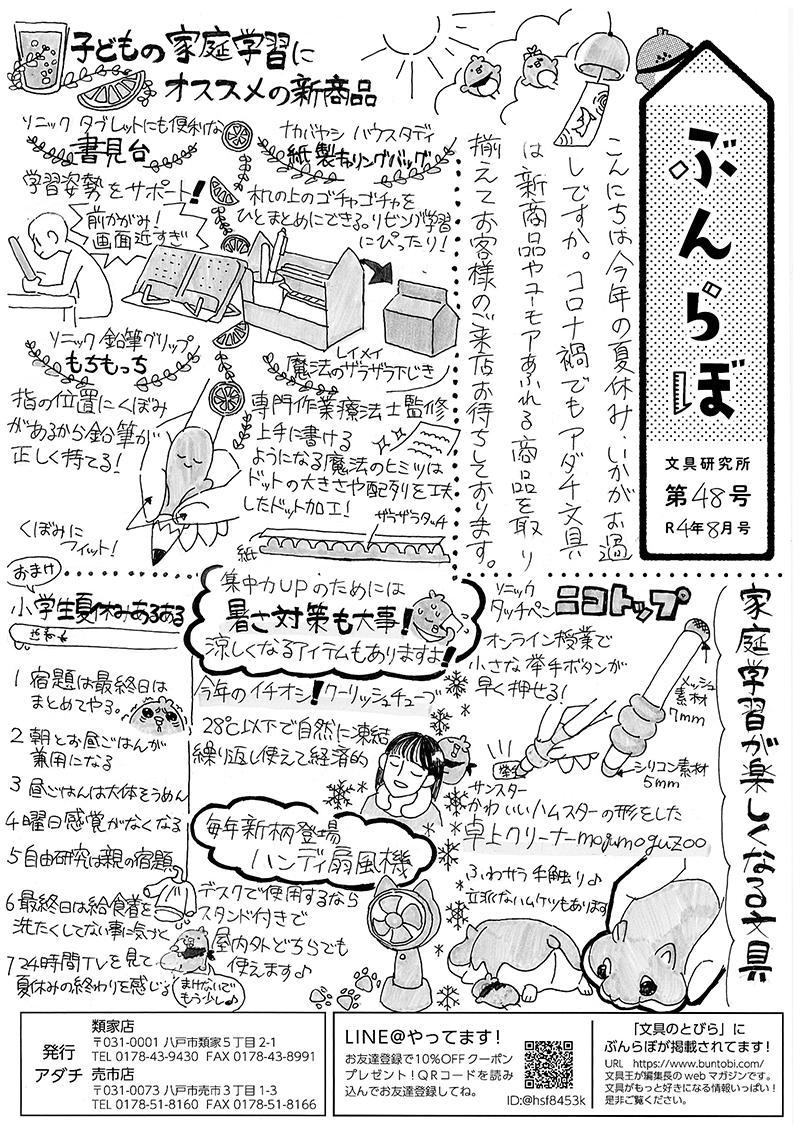 ぶんらぼ
文具研究所
第48号
R4年8月号
こんにちは今年の夏休み、いかがお過
しですか。コロナ禍でもアダチ文具
は新商品やユーモアあふれる商品を取り
揃えてお客様のご来店お待ちしております。
子どもの家庭学習に
オススメの新商品
ソニック タブレットにも便利な
書見台
学習姿勢をサポート!
前かがみ!
画面近すぎ
ナカバヤシ ハウスタディ
紙製キャリングバッグ
机の上のゴチャゴチャを
ひとまとめにできる。リビング学習
にぴったり!
ソニック 鉛筆グリップ
もちもっち
指の位置にくぼみ
があるから鉛筆が
正しく持てる!
くぼみに
フィット!
レイメイ
魔法のザラザラ下じき
専門作業療法士監修
上手に書ける
ようになる魔法のヒミツは
ドットの大きさや配列を工夫
したドット加工!
ザラザラタッチ
紙
おまけ
小学生夏休みあるある
1 宿題は最終日は
まとめてやる。
2 朝とお昼ごはんが
兼用になる
3 昼ごはんは大体そうめん
4 曜日感覚がなくなる
5 自由研究は親の宿題
6 最終日は給食着を
洗たくしてない事に気づく
7 24時間TVを見て
夏休みの終わりを感じる
まけないで
もう少し♪
集中力UPのためには
暑さ対策も大事!
涼しくなるアイテムもありますよ!
今年のイチオシ!クーリッシュチューブ
28℃以下で自然に凍結
繰り返し使えて経済的
毎年新柄登場
ハンディ扇風機
デスクで使用するなら
スタンド付きで
屋内外どちらでも
使えます♪
家庭学習が楽しくなる文具
ソニック
タッチペン ニコトップ
オンライン授業で
小さな挙手ボタンが
早く押せる!
メッシュ
素材
7mm
シリコン素材
5mm
挙手
サンスター
かわいいハムスターの形をした
卓上クリーナーmojumoguzoo
ふわサラ手触り♪
立派なムケツもあります
発行
アダチ
類家店
〒031-0001 八戸市類家5丁目2-1
TEL 0178-43-9430 FAX 0178-43-8991
売市店
〒031-0073 八戸市売市3丁目1-3
TEL 0178-51-8160 FAX 0178-51-8166
LINE@やってます!
お友達登録で10%OFFクーポン
プレゼント!QRコードを読み
込んでお友達登録してね。
ID:@hsf8453k
「文具のとびら」に
ぶんらぼが掲載されてます!
URL https://www.buntobi.com/
文具王が編集長のwebマガジンです。
文具がもっと好きになる情報いっぱい!
是非ご覧ください。